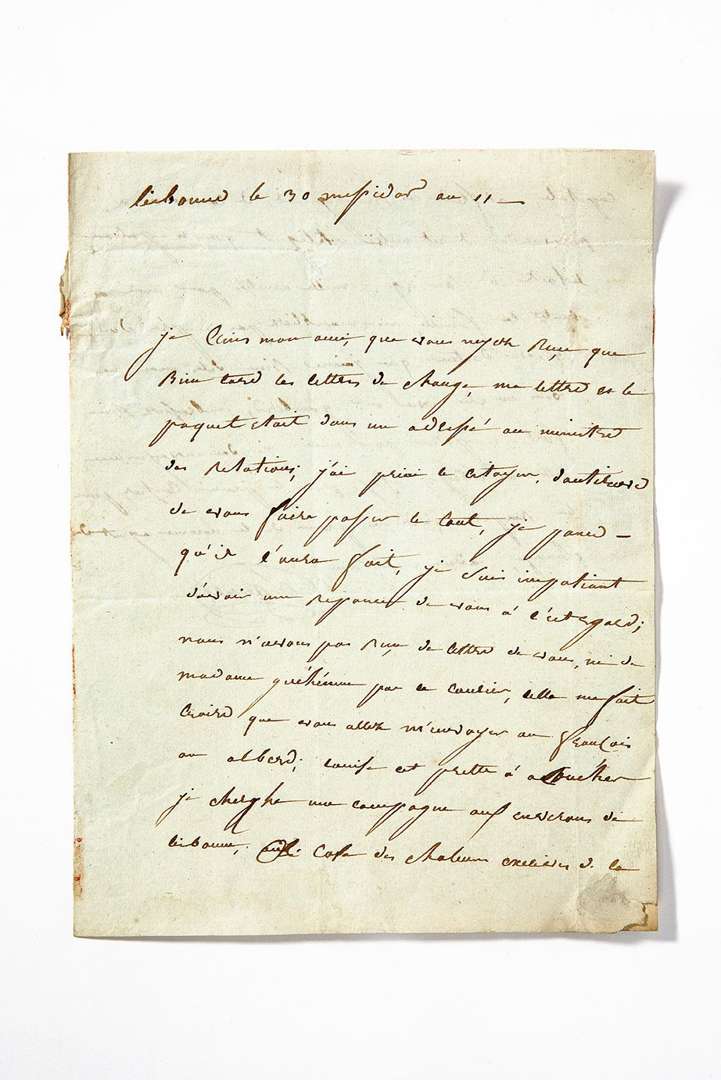 lisbonne le 30 messidor an 11 —
je crains mon ami, que vous n'ayez reçu que
bien tard les lettres de change, ma lettre et le
paquet etait dans un adressé au ministre
des relations; j'ai priai le citoyen d'autrive
de vous faire passer le tout, je panse
qu'il l'aura fait, je suis impatiant
d'avoir une reponce de vous à cet egard;
nous n'avons pas reçu de lettre de vous, ni de
madame par ce courier, cella me fait
croire que vous allez m'envoyer un français
ou alberd; louise est prette à acoucher
je cherche une campagne aux environs de
lisbonne, cose des chaleurs excesives de la